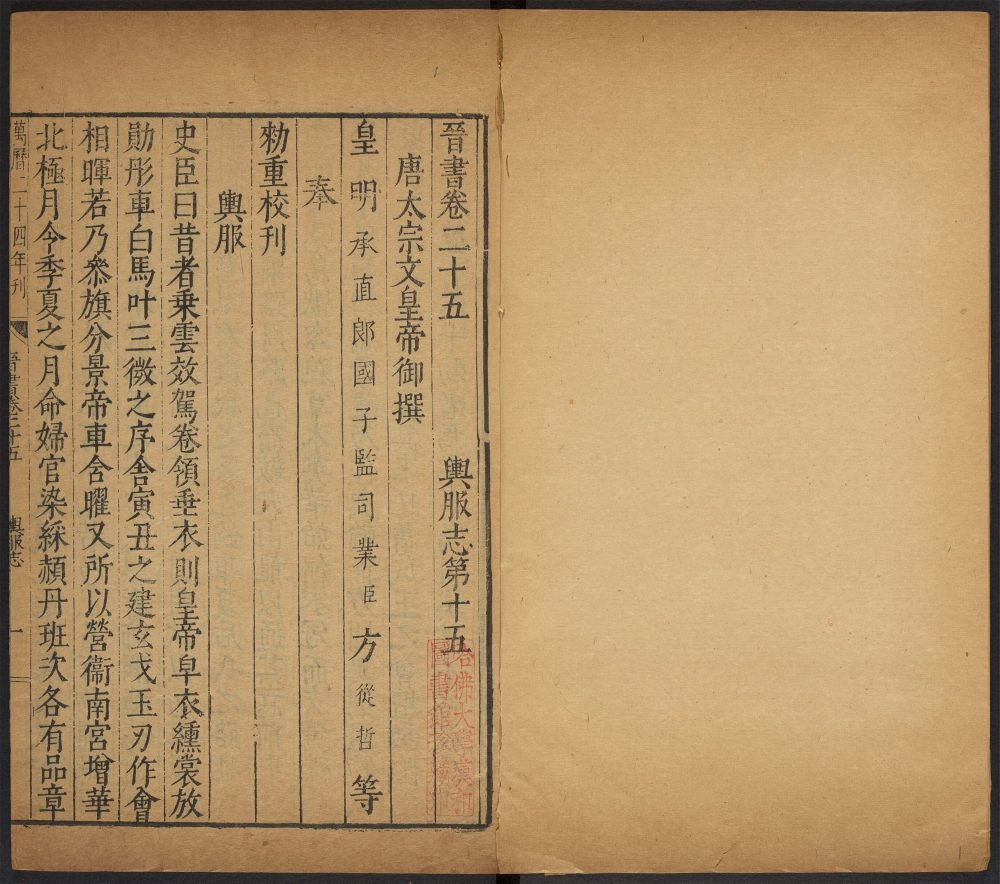 晉書卷二十五 輿服志第十五
唐太宗文皇帝御撰
皇明承直郎國子監司業臣方從哲等
奉
勑重校刊
輿服
史臣曰昔者乗雲效駕卷領垂衣則皇帝皁衣纁裳放
勛彤車白馬叶三微之序舍寅丑之建玄戈玉刃作會
相暉若乃叅旗分景帝車含曜又所以營衞南宮增華
北極月令季夏之月命婦官染綵赬丹班次各有品章
萬曆二十四年刊
晉書卷二十五
輿服志
一
哈佛大學漢和
圖書館